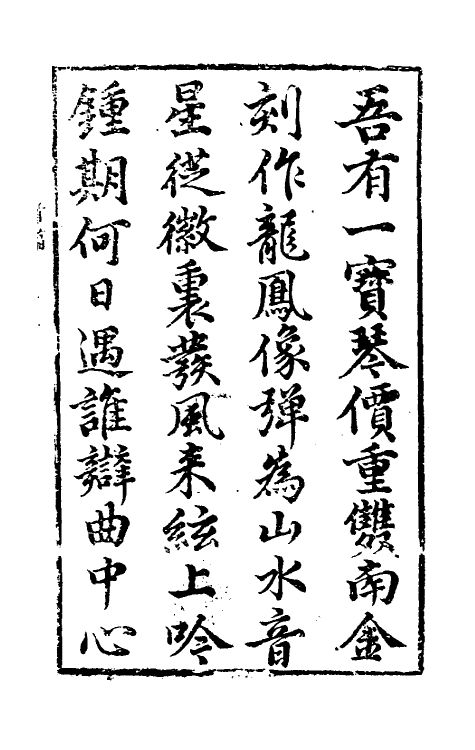 吾有一寶琴價重雙南金
刻作龍鳳像彈為山水音
星從徽裏發風来絃上吟
鍾期何日遇誰辯曲中心